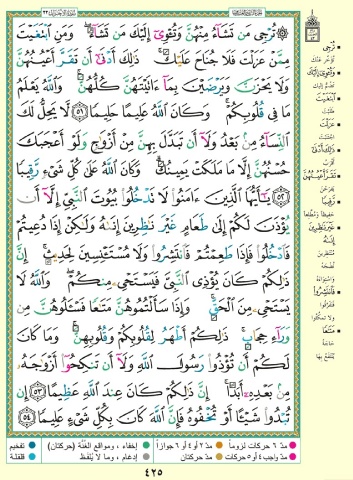 تُرْجِى مَن تَشَآءُ مِنْهُنَّ وَتُـْٔوِىٓ إِلَيْكَ مَن تَشَآءُ ۖ وَمَنِ ٱبْتَغَيْتَ
مِمَّنْ عَزَلْتَ فَلَا جُنَاحَ عَلَيْكَ ۚ ذَٰلِكَ أَدْنَىٰٓ أَن تَقَرَّ أَعْيُنُهُنَّ
وَلَا يَحْزَنَّ وَيَرْضَيْنَ بِمَآ ءَاتَيْتَهُنَّ كُلُّهُنَّ ۚ وَٱللَّهُ يَعْلَمُ
مَا فِى قُلُوبِكُمْ ۚ وَكَانَ ٱللَّهُ عَلِيمًا حَلِيمًا ٥١ لَّا يَحِلُّ لَكَ
ٱلنِّسَآءُ مِنۢ بَعْدُ وَلَآ أَن تَبَدَّلَ بِهِنَّ مِنْ أَزْوَٰجٍ وَلَوْ أَعْجَبَكَ
حُسْنُهُنَّ إِلَّا مَا مَلَكَتْ يَمِينُكَ ۗ وَكَانَ ٱللَّهُ عَلَىٰ كُلِّ شَىْءٍ رَّقِيبًا
٥٢ يَـٰٓأَيُّهَا ٱلَّذِينَ ءَامَنُوا۟ لَا تَدْخُلُوا۟ بُيُوتَ ٱلنَّبِىِّ إِلَّآ أَن
يُؤْذَنَ لَكُمْ إِلَىٰ طَعَامٍ غَيْرَ نَـٰظِرِينَ إِنَىٰهُ وَلَـٰكِنْ إِذَا دُعِيتُمْ
فَٱدْخُلُوا۟ فَإِذَا طَعِمْتُمْ فَٱنتَشِرُوا۟ وَلَا مُسْتَـْٔنِسِينَ لِحَدِيثٍ ۚ إِنَّ
ذَٰلِكُمْ كَانَ يُؤْذِى ٱلنَّبِىَّ فَيَسْتَحْىِۦ مِنكُمْ ۖ وَٱللَّهُ لَا
يَسْتَحْىِۦ مِنَ ٱلْحَقِّ ۚ وَإِذَا سَأَلْتُمُوهُنَّ مَتَـٰعًا فَسْـَٔلُوهُنَّ مِن
وَرَآءِ حِجَابٍ ۚ ذَٰلِكُمْ أَطْهَرُ لِقُلُوبِكُمْ وَقُلُوبِهِنَّ ۚ وَمَا كَانَ
لَكُمْ أَن تُؤْذُوا۟ رَسُولَ ٱللَّهِ وَلَآ أَن تَنكِحُوٓا۟ أَزْوَٰجَهُۥ
مِنۢ بَعْدِهِۦٓ أَبَدًا ۚ إِنَّ ذَٰلِكُمْ كَانَ عِندَ ٱللَّهِ عَظِيمًا ٥٣ إِن
تُبْدُوا۟ شَيْـًٔا أَوْ تُخْفُوهُ فَإِنَّ ٱللَّهَ كَانَ بِكُلِّ شَىْءٍ عَلِيمًا ٥٤
تُرْجِي
وَتُؤْوِي إِلَيْكَ
ابْتَغَيْتَ
عَزَلْتَ
ذَلِكَ أَدْنَى
تَقَرَّ أَعْيُنُهُنَّ
رَقِيبًا
فَانتَشِرُوا
مَتَاعًا
مدّ ٦ حركات لزوماً مدّ ٢ أو ٤ أو ٦ جوازاً إخفاء، ومواقع الغنّة (حركتان) تفخيم
مدّ واجب ٤ أو ٥ حركات مدّ حركتان إدغام، وما لا يُلفظ قلقلة
٤٢٥